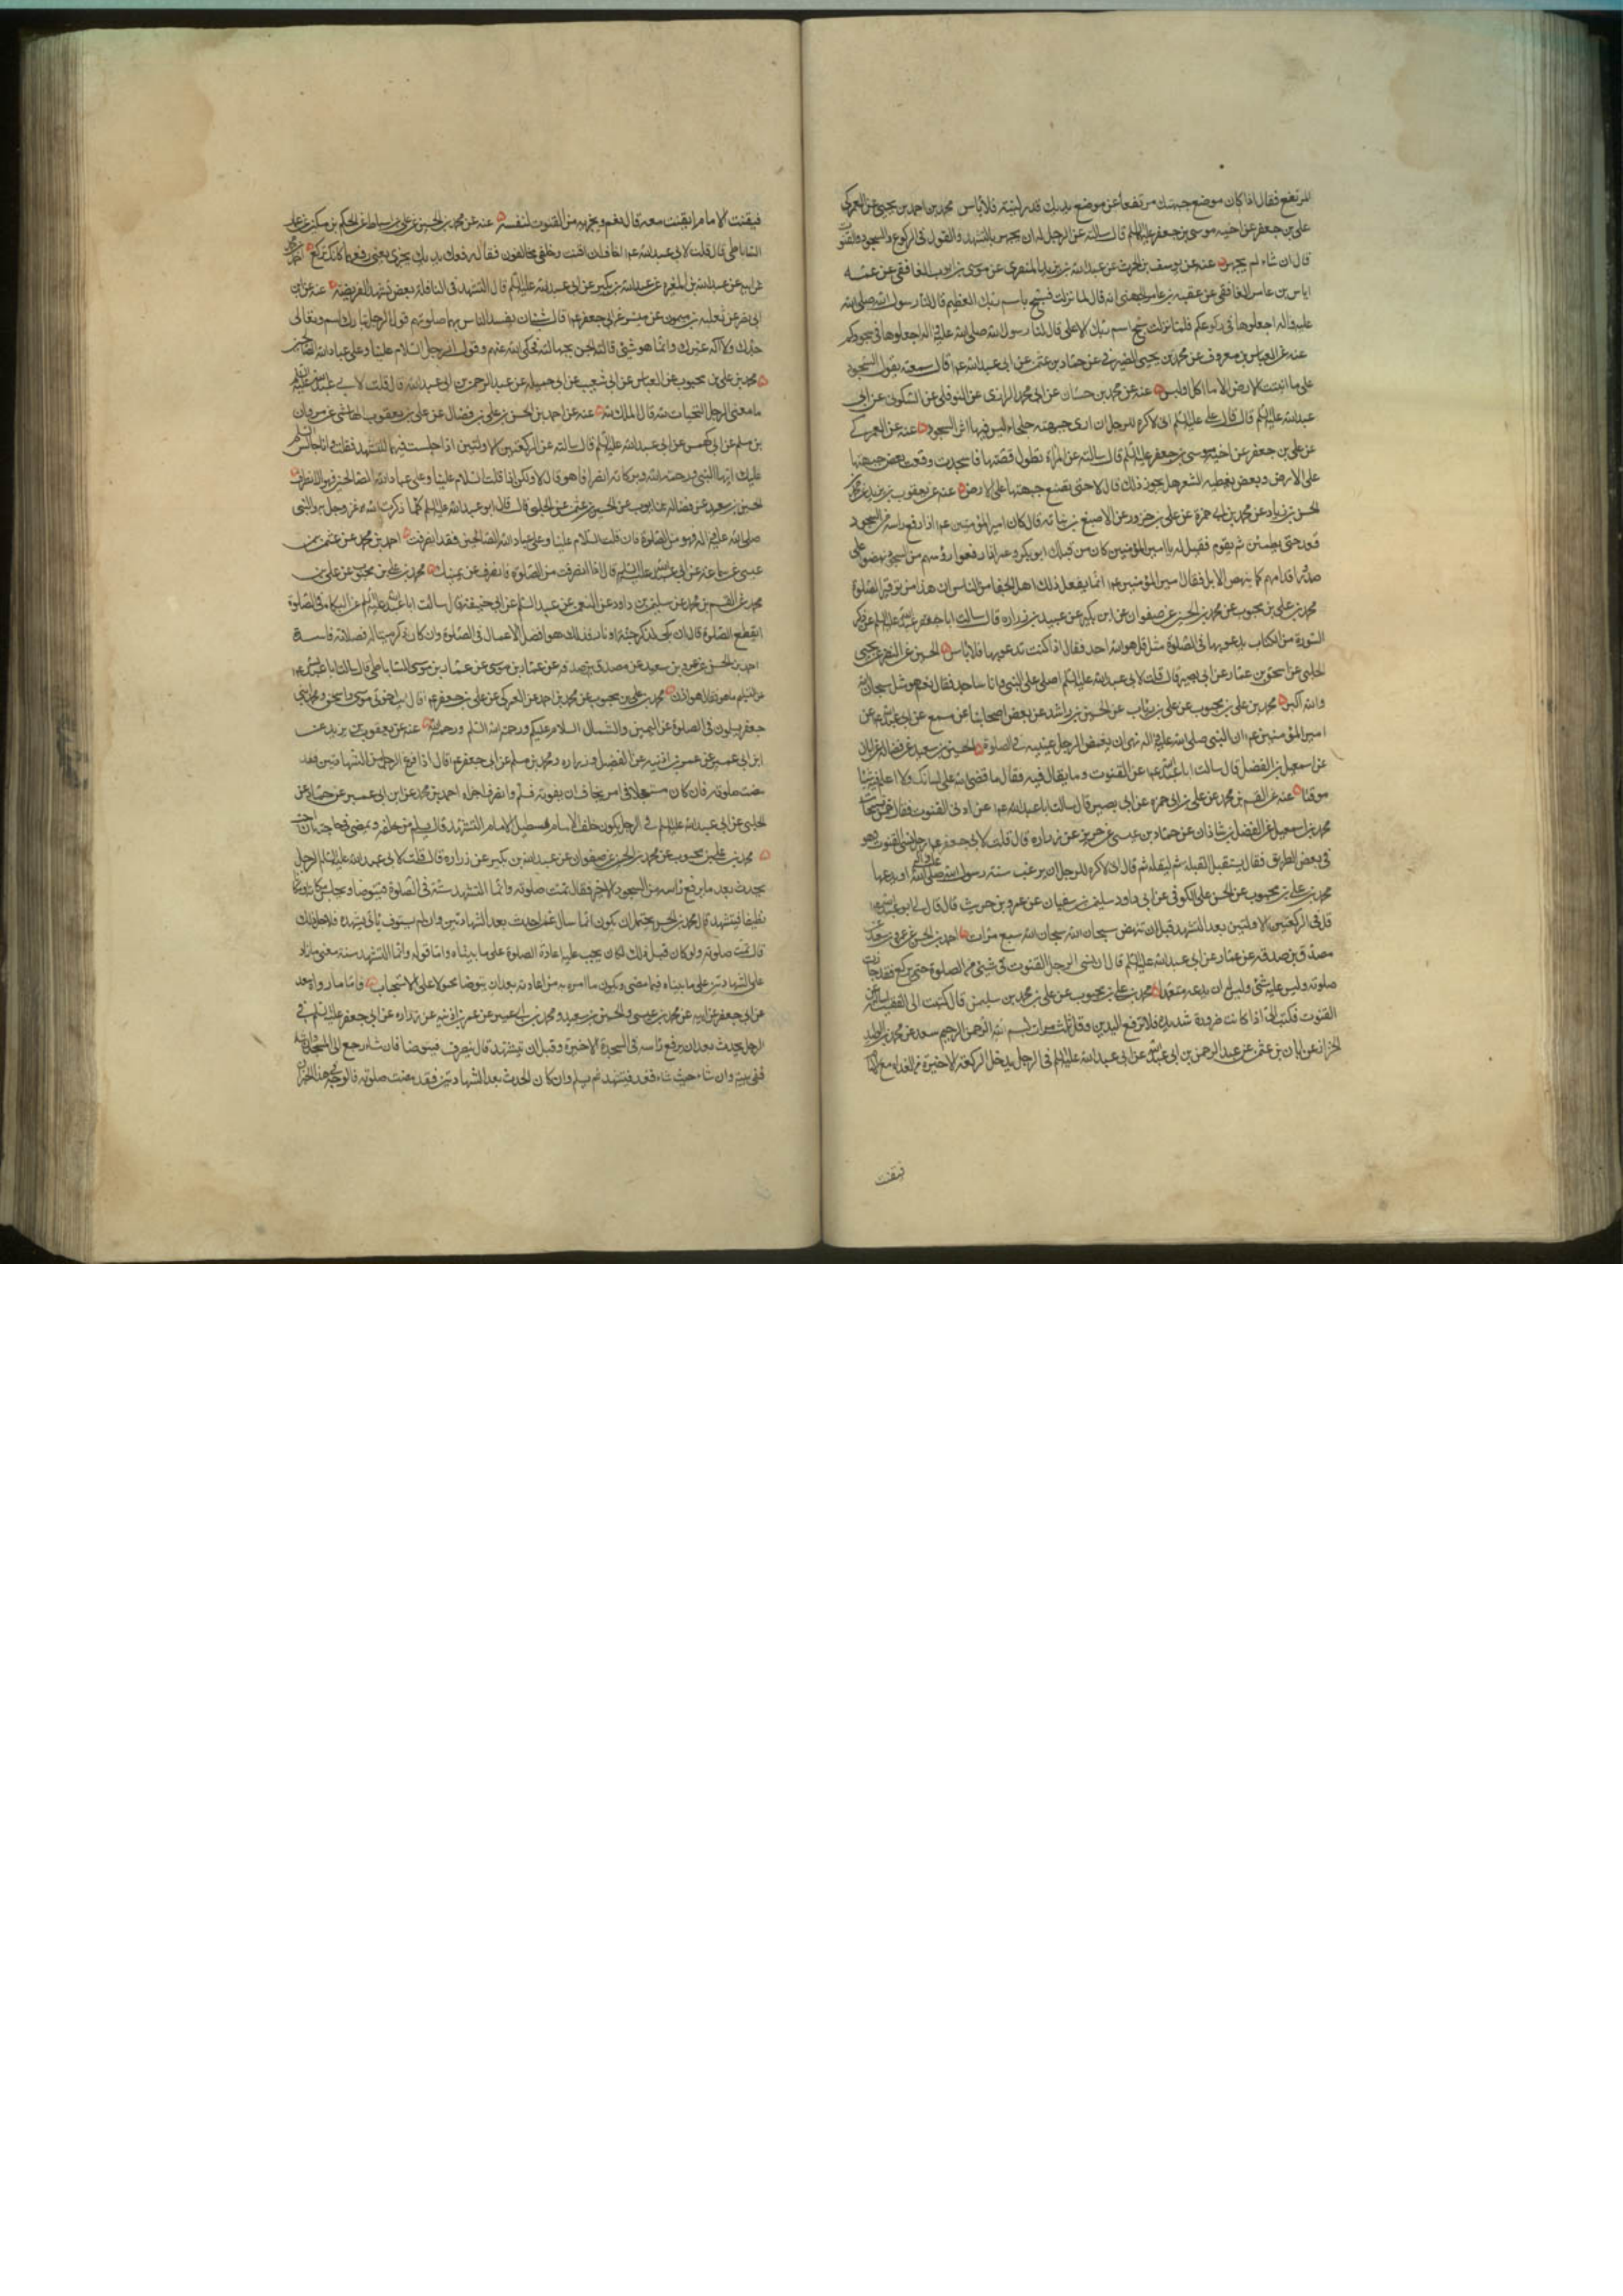 المرتفع فقال اذا كان موضع جبهتك مرتفعا عن موضع يديك قدر لبنة فلا باس محمد بن احمد بن يحيى عن العمركى
على بن جعفر عن اخيه موسى بن جعفر عليه السلم قال سالته عن الرجل له ان يجهر بالتشهد والقول فى الركوع والسجود والقنوت
قال ان شاء لم يجهر عنه عن يوسف بن الحرث عن عبدالله بن يزيد المنقرى عن موسى بن ايوب الغافقى عن عمه
اياس بن عامر الغافقى عن عقبه بن عامر الجهنى انه قال لما نزلت فسبح باسم ربك العظيم قال لنا رسول الله صلى الله
عليه وآله اجعلوها فى ركوعكم فلما نزلت سبح اسم ربك الاعلى قال لنا رسول الله صلى الله عليه وآله اجعلوها فى سجودكم
عنه عن العباس بن معروف عن محمد بن يحيى الصيرفى عن حماد بن عثمن عن ابى عبدالله ع قال سمعته يقول السجود
على ما انبتت الارض الا ما اكل او لبس عنه عن محمد بن حسان عن ابى محمد الرازى عن النوفلى عن السكونى عن ابى
عبدالله عليه السلم قال قال على عليه السلم انى لاكره للرجل ان ارى جبهته جلحاء ليس فيها اثر السجود عنه عن العمركى
عن على بن جعفر عن اخيه موسى بن جعفر عليه السلم قال سالته عن المراة تطول قصتها فاذا سجدت وقعت بعض جبهتها
على الارض وبعض يغطيه الشعر هل يجوز ذلك قال لا حتى تضع جبهتها على الارض عنه عن يعقوب بن يزيد عن محمد
الحسن بن زياد عن محمد بن ابى حمزة عن على بن حزور عن الاصبغ بن نباته قال كان امير المؤمنين ع اذا رفع راسه من السجود
قعد حتى يطمئن ثم يقوم فقيل له يا امير المؤمنين كان من قبلك ابو بكر وعمر اذا رفعوا رؤسهم من السجود نهضوا على
صدور اقدامهم كما ينهض الابل فقال امير المؤمنين ع انما يفعل ذلك اهل الجفا من الناس ان هذا من توقير الصلوة
محمد بن على بن محبوب عن محمد بن الحسين عن صفوان عن ابن بكير عن عبيد بن زراره قال سالت ابا جعفر عليه السلم عن ذكر
السورة من الكتاب يدعو بها فى الصلوة مثل قل هو الله احد فقال اذا كنت تدعو بها فلا باس الحسين عن النضر عن يحيى
الحلبى عن اسحق بن عمار عن ابى بصير قال قلت لابى عبدالله عليه السلم اصلى على النبى وانا ساجد فقال نعم هو مثل سبحان الله
والله اكبر محمد بن على بن محبوب عن على بن رئاب عن الحسين بن راشد عن بعض اصحابنا عن مسمع عن ابى عبدالله ع عن
امير المؤمنين ع ان النبى صلى الله عليه وآله نهى ان يغمض الرجل عينيه فى الصلوة الحسين بن سعيد عن فضاله عن ابان
عن اسمعيل بن الفضل قال سالت ابا عبدالله ع عن القنوت وما يقال فيه فقال ما قضى الله على لسانك ولا اعلم فيه شيئا
موقتا عنه عن القسم بن محمد عن على بن ابى حمزه عن ابى بصير قال سالت ابا عبدالله ع عن ادنى القنوت فقال خمس تسبيحات
محمد بن اسمعيل عن الفضل بن شاذان عن حماد بن عيسى عن حريز عن زراره قال قلت لابى جعفر ع رجل نسى القنوت وهو
فى بعض الطريق فقال يستقبل القبلة ثم ليقله ثم قال انى لاكره للرجل ان يرغب عن سنة رسول الله صلى الله عليه وآله او يدعها
محمد بن على بن محبوب عن الحسن على الكوفى عن ابى داود سليمن بن سفيان عن عمرو بن حريث قال قال لى ابو عبدالله ع
قل فى الركعتين الاولتين بعد التشهد قبل ان تنهض سبحان الله سبحان الله سبع مرات احمد بن الحسن عن عمرو بن سعيد عن
مصدق بن صدقه عن عمار عن ابى عبدالله عليه السلم قال ان نسى الرجل القنوت فى شئى من الصلوة حتى يركع فقد جازت
صلوته وليس عليه شئى وليس له ان يدعه متعمدا محمد بن على بن محبوب عن على بن محمد بن سليمن قال كتبت الى الفقيه اساله عن
القنوت فكتب الى اذا كانت ضرورة شديدة فلا ترفع اليدين وقل ثلث مرات بسم الله الرحمن الرحيم سعد عن محمد بن الوليد
الخزاز عن ابان بن عثمن عن عبدالرحمن بن ابى عبدالله عن ابى عبدالله عليه السلم فى الرجل يدخل الركعة الاخيرة من الغداة مع الامام
فيقنت
فيقنت الامام ايقنت معه قال نعم ويجزيه من القنوت لنفسه عنه عن محمد بن الحسين عن على بن اسباط عن الحكم بن مسكين عن عمار
الساباطى قال قلت لابى عبدالله ع اخاف ان اقنت وخلفى مخالفون فقال رفعك يديك يجزى يعنى رفعهما كانك تركع احمد بن
عن ابيه عن عبدالله بن المغيره عن عبدالله بن بكير عن ابى عبدالله عليه السلم قال التشهد فى النافلة بعض تشهد الفريضة عنه عن ابن
ابى نصر عن ثعلبه بن ميمون عن ميسر عن ابى جعفر ع قال شيئان يفسد الناس بهما صلوتهم قول الرجل تبارك اسمك وتعالى
جدك ولا اله غيرك وانما هو شئى قالته الجن بجهالة فحكى الله عنهم وقول الرجل السلام علينا وعلى عباد الله الصالحين
محمد بن على بن محبوب عن العباس عن ابى شعيب عن ابى جميله عن عبدالرحمن بن ابى عبدالله قال قلت لابى عبدالله عليه السلم
ما معنى الرجل التحيات لله قال الملك لله عنه عن احمد بن الحسن بن على بن فضال عن على بن يعقوب الهاشمى عن مروان
بن مسلم عن ابى كهمس عن ابى عبدالله عليه السلم قال سالته عن الركعتين الاولتين اذا جلست فيهما للتشهد فقلت وانا جالس السلم
عليك ايها النبى ورحمة الله وبركاته انصراف هو قال لا ولكن اذا قلت السلام علينا وعلى عباد الله الصالحين فهو الانصراف
الحسين بن سعيد عن فضاله عن ايوب عن الحسين بن عثمن عن الحلبى قال قال ابو عبدالله عليه السلم كلما ذكرت الله عز وجل به والنبى
صلى الله عليه وآله فهو من الصلوة فان قلت السلام علينا وعلى عباد الله الصالحين فقد انصرفت احمد بن محمد عن عثمن بن
عيسى عن سماعة عن ابى عبدالله عليه السلم قال اذا انصرفت من الصلوة فانصرف عن يمينك محمد بن على بن محبوب عن على بن
محمد عن القسم بن محمد عن سليمن بن داود عن النعمن عن عبد السلم عن ابى حنيفه قال سالت ابا عبدالله عليه السلم عن البكاء فى الصلوة
ايقطع الصلوة قال ان بكى لذكر جنة او نار فذلك هو افضل الاعمال فى الصلوة وان كان ذكر ميتا له فصلاته فاسدة
احمد بن الحسن عن عمرو بن سعيد عن مصدق بن صدقه عن عمار بن موسى الساباطى قال سالت ابا عبدالله ع
عن التسليم ما هو فقال هو اذن محمد بن على بن محبوب عن محمد بن احمد عن العمركى عن على بن جعفر ع قال رايت اخوتى موسى واسحق ومحمد بنى
جعفر يسلمون فى الصلوة عن اليمين والشمال السلام عليكم ورحمة الله السلم ورحمة الله عنه عن يعقوب بن يزيد عن
ابن ابى عمير عن عمر بن اذنيه عن الفضيل وزراره ومحمد بن مسلم عن ابى جعفر ع قال اذا فرغ الرجل من الشهادتين فقد
مضت صلوته فان كان مستعجلا فى امر يخاف ان يفوته فسلم وانصرف اجزاه احمد بن محمد عن ابن ابى عمير عن حماد عن
الحلبى عن ابى عبدالله عليه السلم فى الرجل يكون خلف الامام فيطيل الامام التشهد قال يسلم من خلفه ويمضى فى حاجته ان احب
محمد بن على بن محبوب عن محمد بن الحسين عن صفوان عن عبدالله بن بكير عن زراره قال قلت لابى عبدالله عليه السلم الرجل
يحدث بعد ما يرفع راسه من السجود الاخير فقال تمت صلوته وانما التشهد سنة فى الصلوة فيتوضا ويجلس مكانه او مكانا
نظيفا فيتشهد قال محمد بن الحسن يحتمل ان يكون انما سال عمن احدث بعد الشهادتين وان لم يستوف باقى تشهده فلاجل ذلك
قال تمت صلوته ولو كان قبل ذلك لكان يجب عليه اعادة الصلوة على ما بيناه واما قوله وانما التشهد سنة معنى ما زاد
على الشهادتين على ما بيناه فيما مضى ويكون ما امره به من اعادته بعد ان يتوضا محمولا على الاستحباب فاما ما رواه سعد
عن ابى جعفر عن ابيه عن محمد بن عيسى والحسين بن سعيد ومحمد بن ابى عمير عن عمر بن اذنيه عن زراره عن ابى جعفر عليه السلم فى
الرجل يحدث بعد ان يرفع راسه فى السجدة الاخيرة وقبل ان يتشهد قال ينصرف فيتوضا فان شاء رجع الى المسجد وان شاء
ففى بيته وان شاء حيث شاء قعد فيتشهد ثم يسلم وان كان الحدث بعد الشهادتين فقد مضت صلوته فالوجه فى هذا الخبر ان